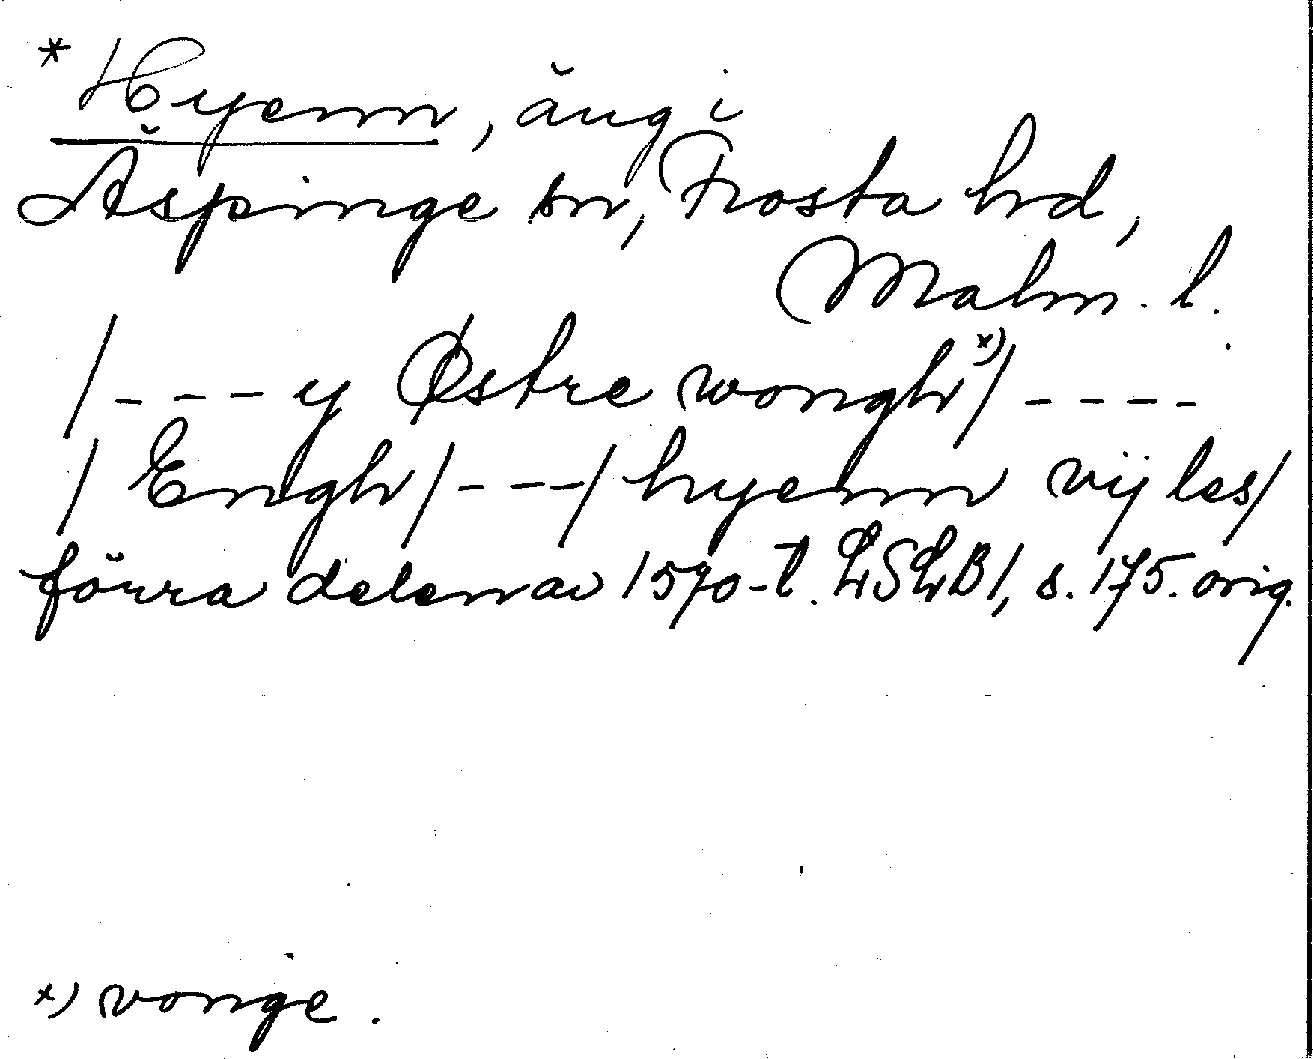 * Hyenn, äng i
Äspinge sn, Frosta hrd,
Malm. l.
/---- y Østre wongh x)/ ----
/ Engh /---/ hyenn vij les/
förra delen av 1570-t. LSLB 1, s. 175. orig.
x) vonge.